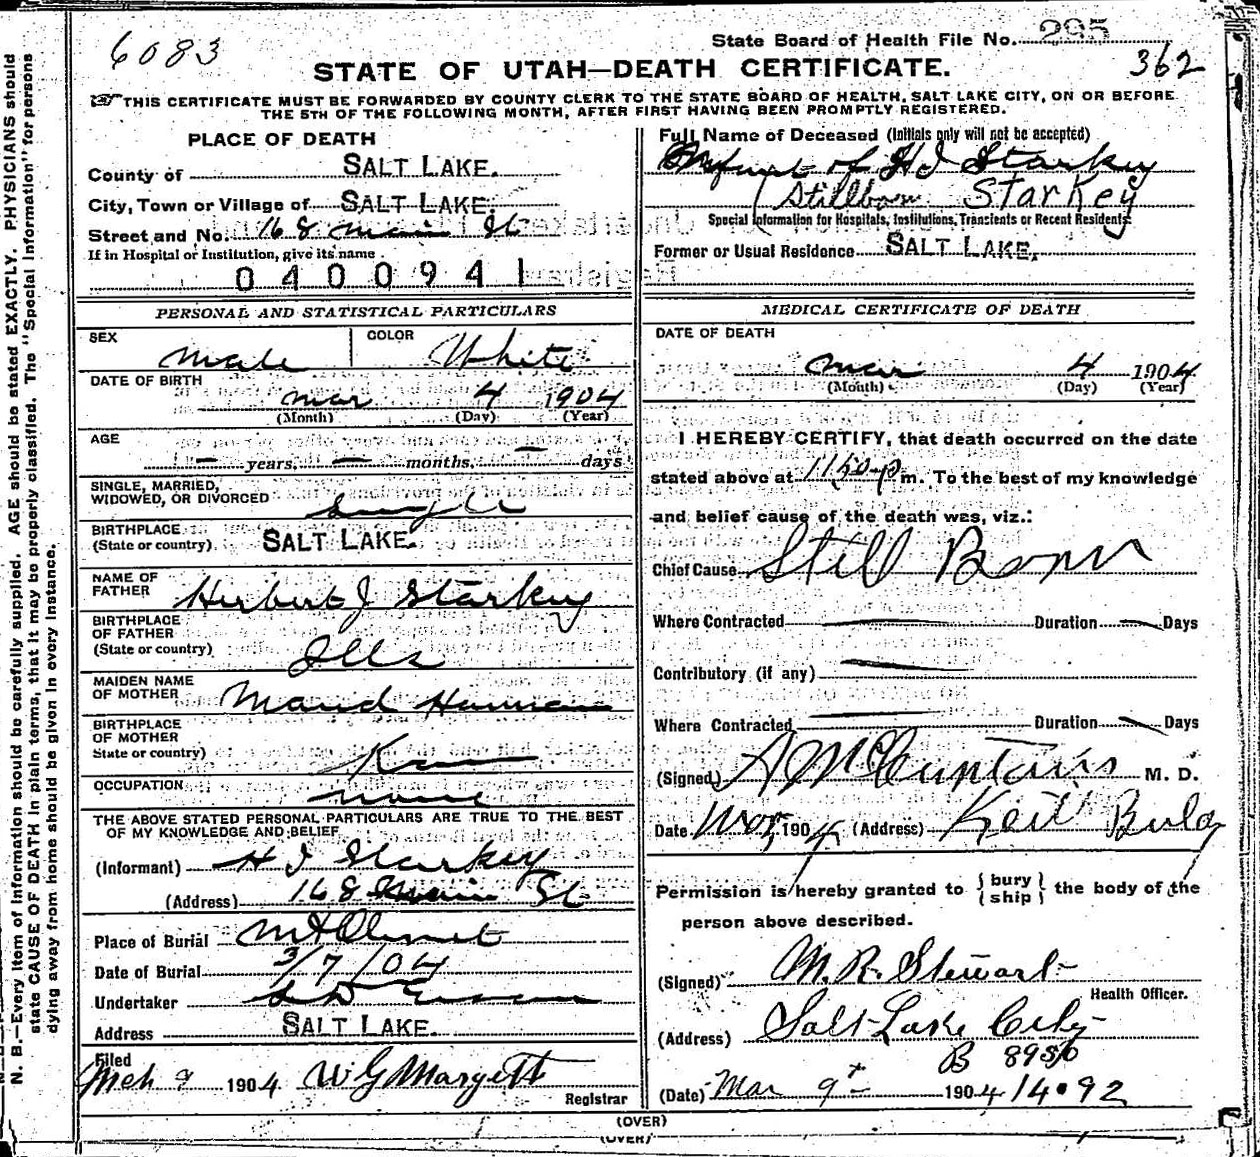 6083
State Board of Health File No. 295
362
STATE OF UTAH—DEATH CERTIFICATE.
THIS CERTIFICATE MUST BE FORWARDED BY COUNTY CLERK TO THE STATE BOARD OF HEALTH, SALT LAKE CITY, ON OR BEFORE
THE 5TH OF THE FOLLOWING MONTH, AFTER FIRST HAVING BEEN PROMPTLY REGISTERED.
N. B.—Every item of information should be carefully supplied. AGE should be stated EXACTLY. PHYSICIANS should
state CAUSE OF DEATH in plain terms, that it may be properly classified. The "Special Information" for persons
dying away from home should be given in every instance.
PLACE OF DEATH
County of SALT LAKE.
City, Town or Village of SALT LAKE.
Street and No. 168 Main St
If in Hospital or Institution, give its name
0400941
PERSONAL AND STATISTICAL PARTICULARS
SEX Male COLOR White
DATE OF BIRTH
Mar 4 1904
(Month) (Day) (Year)
AGE
— years, — months, — days
SINGLE, MARRIED,
WIDOWED, OR DIVORCED Single
BIRTHPLACE
(State or country) SALT LAKE.
NAME OF
FATHER Herbert J Starkey
BIRTHPLACE
OF FATHER
(State or country) Ills
MAIDEN NAME
OF MOTHER Maud
BIRTHPLACE
OF MOTHER
State or country)
OCCUPATION none
THE ABOVE STATED PERSONAL PARTICULARS ARE TRUE TO THE BEST
OF MY KNOWLEDGE AND BELIEF
(Informant) H J Starkey
(Address) 168 Main St
Place of Burial Mt Olivet
Date of Burial 3/7/04
Undertaker
Address SALT LAKE.
Filed
Mch 9 1904 W G Margett
Registrar
Full Name of Deceased (Initials only will not be accepted)
Infant of H J Starkey
(Stillborn Starkey
Special Information for Hospitals, Institutions, Transients or Recent Residents
Former or Usual Residence SALT LAKE.
MEDICAL CERTIFICATE OF DEATH
DATE OF DEATH
Mar 4 1904
(Month) (Day) (Year)
I HEREBY CERTIFY, that death occurred on the date
stated above at 1150 p m. To the best of my knowledge
and belief cause of the death was, viz.:
Chief Cause Still Born
Where Contracted — Duration — Days
Contributory (if any) —
Where Contracted — Duration — Days
(Signed) M. D.
Date Mar, 1904 (Address) Keith
Permission is hereby granted to {bury
ship} the body of the
person above described.
(Signed) M. R. Stewart
Health Officer.
(Address) Salt Lake City
B 8950
(Date) Mar 9th 1904 14·92
(OVER)
(OVER)